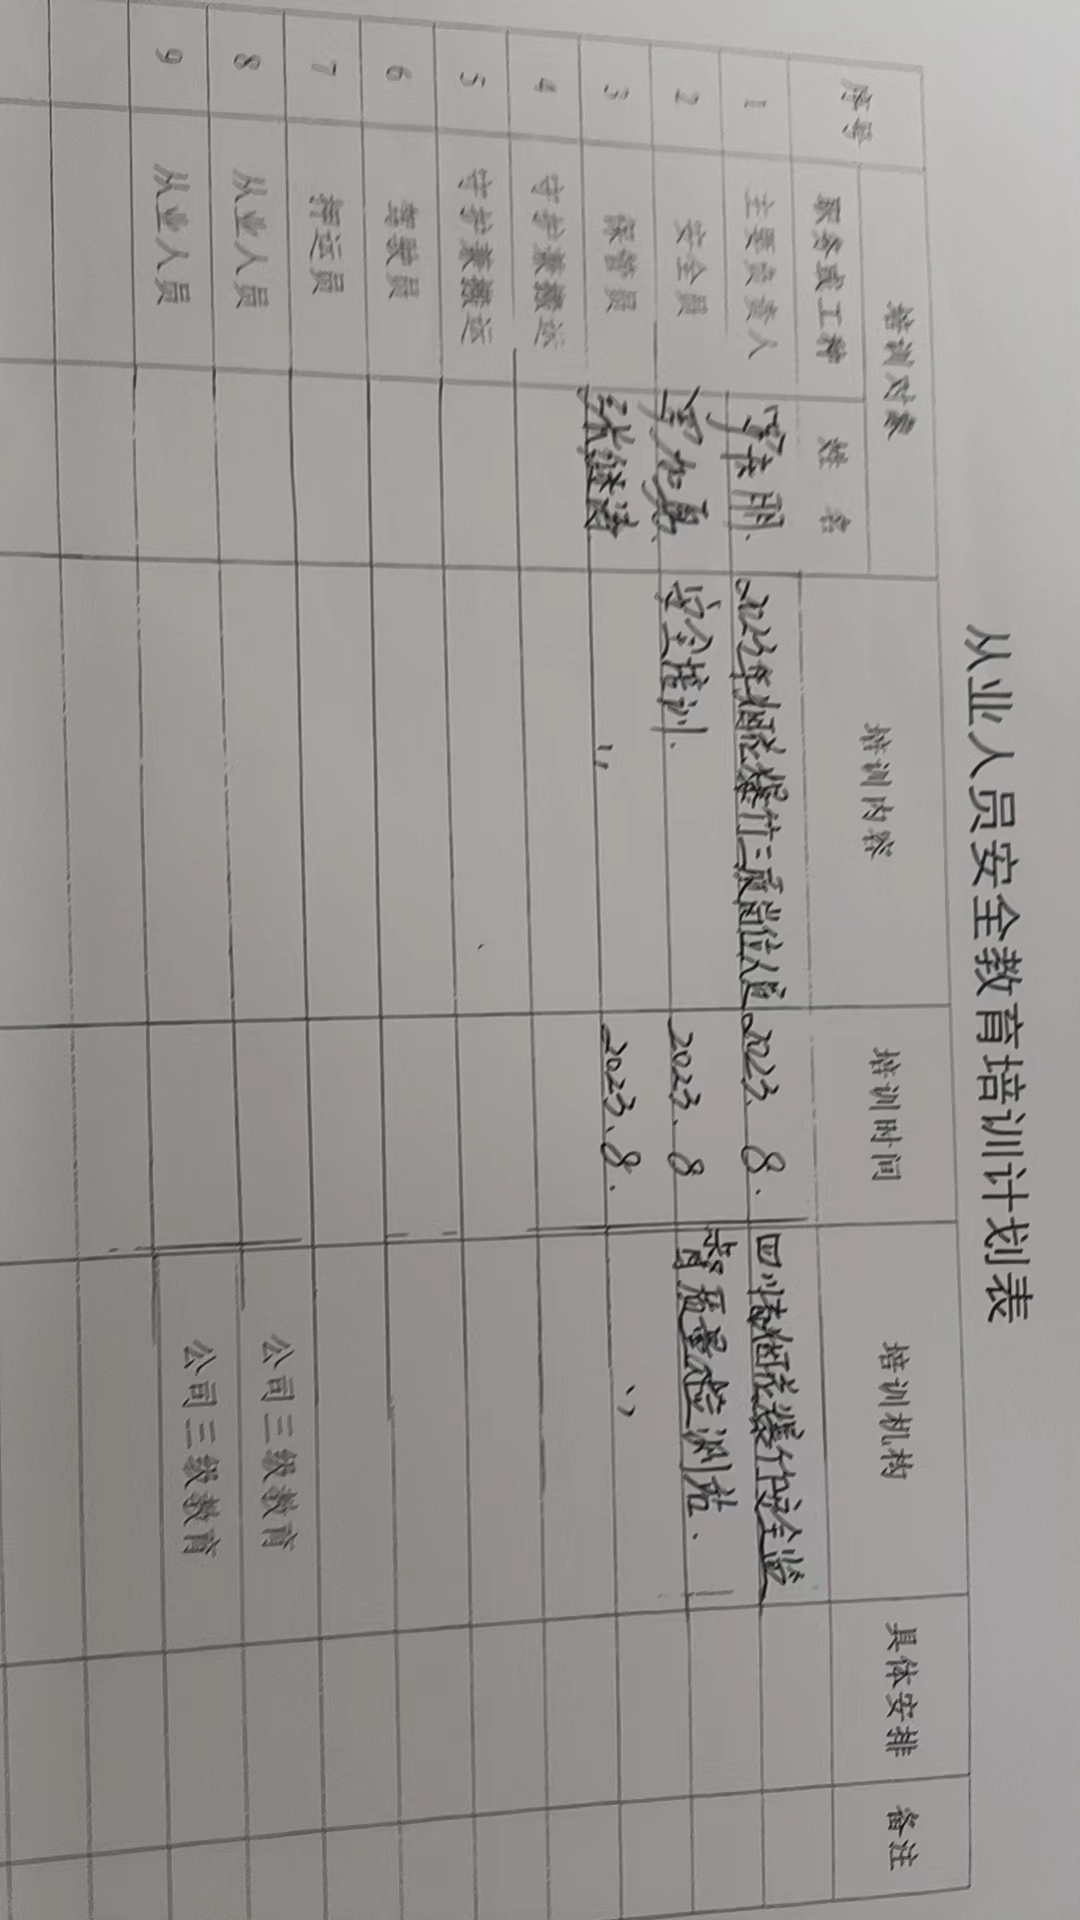 从业人员安全教育培训计划表
序号 培训对象 培训内容 培训时间 培训机构 具体安排 备注
职务或工种 姓名
1 主要负责人 2023年烟花爆竹三项岗位人员 2023.8. 四川省烟花爆竹安全监
2 安全员 安全培训. 2023.8 督质量检测站.
3 保管员 张继清 〃 2023.8. 〃
4 守护兼搬运
5 守护兼搬运
6 驾驶员
7 押运员
8 从业人员 公司三级教育
9 从业人员 公司三级教育